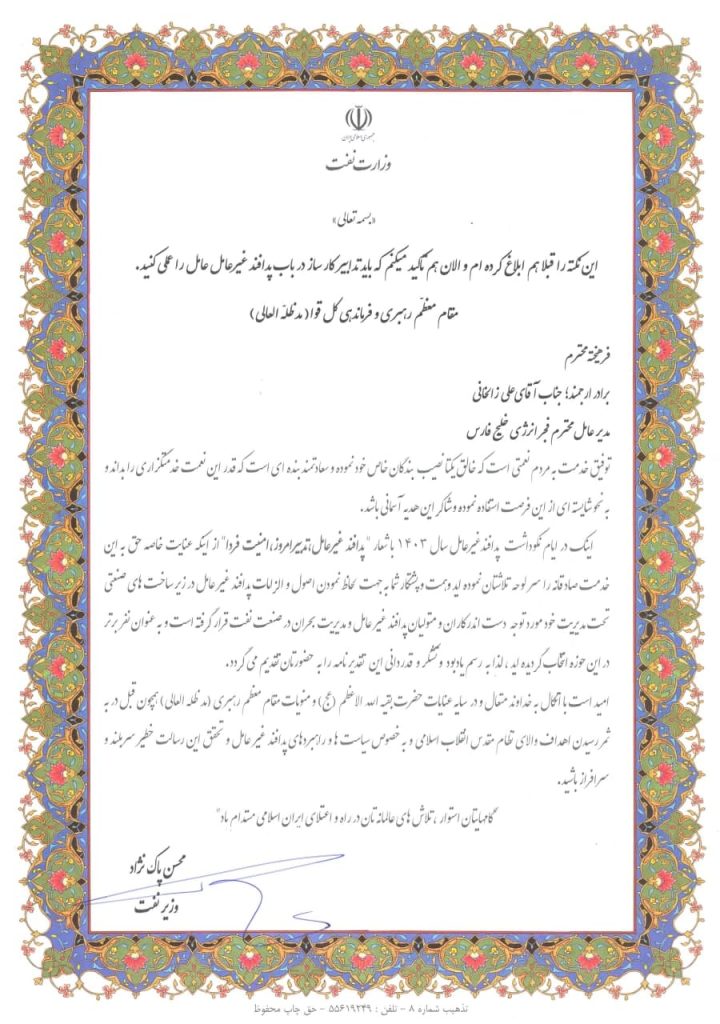 جمهوری اسلامی ایران
وزارت نفت
«بسمه تعالی»
این نکته را قبلا هم ابلاغ کرده ام و الان هم تأکید میکنم که باید تدابیر کارساز در باب پدافند غیرعامل عامل را عملی کنید.
مقام معظّم رهبری و فرماندهی کل قوا (مدظلّه العالی)
فرهیخته محترم
برادر ارجمند؛ جناب آقای علی زالخانی
مدیرعامل محترم فجر انرژی خلیج فارس
توفیق خدمت به مردم نعمتی است که خالق یکتا نصیب بندگان خاص خود نموده و سعادتمند بنده ای است که قدر این نعمت خدمتگزاری را بداند و
به نحو شایسته ای از این فرصت استفاده نموده و شاکر این هدیه آسمانی باشد.
اینک در ایام نکوداشت پدافند غیرعامل سال ۱۴۰۳ با شعار "پدافند غیرعامل، تدبیر امروز، امنیت فردا" از اینکه عنایت خاصه حق به این
خدمت صادقانه را سرلوحه تلاشتان نموده اید و همت و پشتکار شما به جهت لحاظ نمودن اصول و الزامات پدافند غیر عامل در زیرساخت های صنعتی
تحت مدیریت خود مورد توجه دست اندرکاران و متولیان پدافند غیر عامل و مدیریت بحران در صنعت نفت قرار گرفته است و به عنوان نفر برتر
در این حوزه انتخاب گردیده اید، لذا به رسم یادبود و تشکر و قدردانی این تقدیرنامه را به حضورتان تقدیم می گردد.
امید است با اتکال به خداوند متعال و در سایه عنایات حضرت بقیه الله الاعظم (عج) و منویات مقام معظم رهبری (مدظله العالی) همچون قبل در به
ثمر رسیدن اهداف والای نظام مقدس انقلاب اسلامی و به خصوص سیاست ها و راهبردهای پدافند غیر عامل و تحقق این رسالت خطیر سربلند و
سرافراز باشید.
گامهایتان استوار، تلاش های عالمانه تان در راه و اعتلای ایران اسلامی مستدام باد"
محسن پاک نژاد
وزیر نفت
تذهیب شماره ۸ - تلفن : ۵۵۶۱۹۲۴۹ - حق چاپ محفوظ